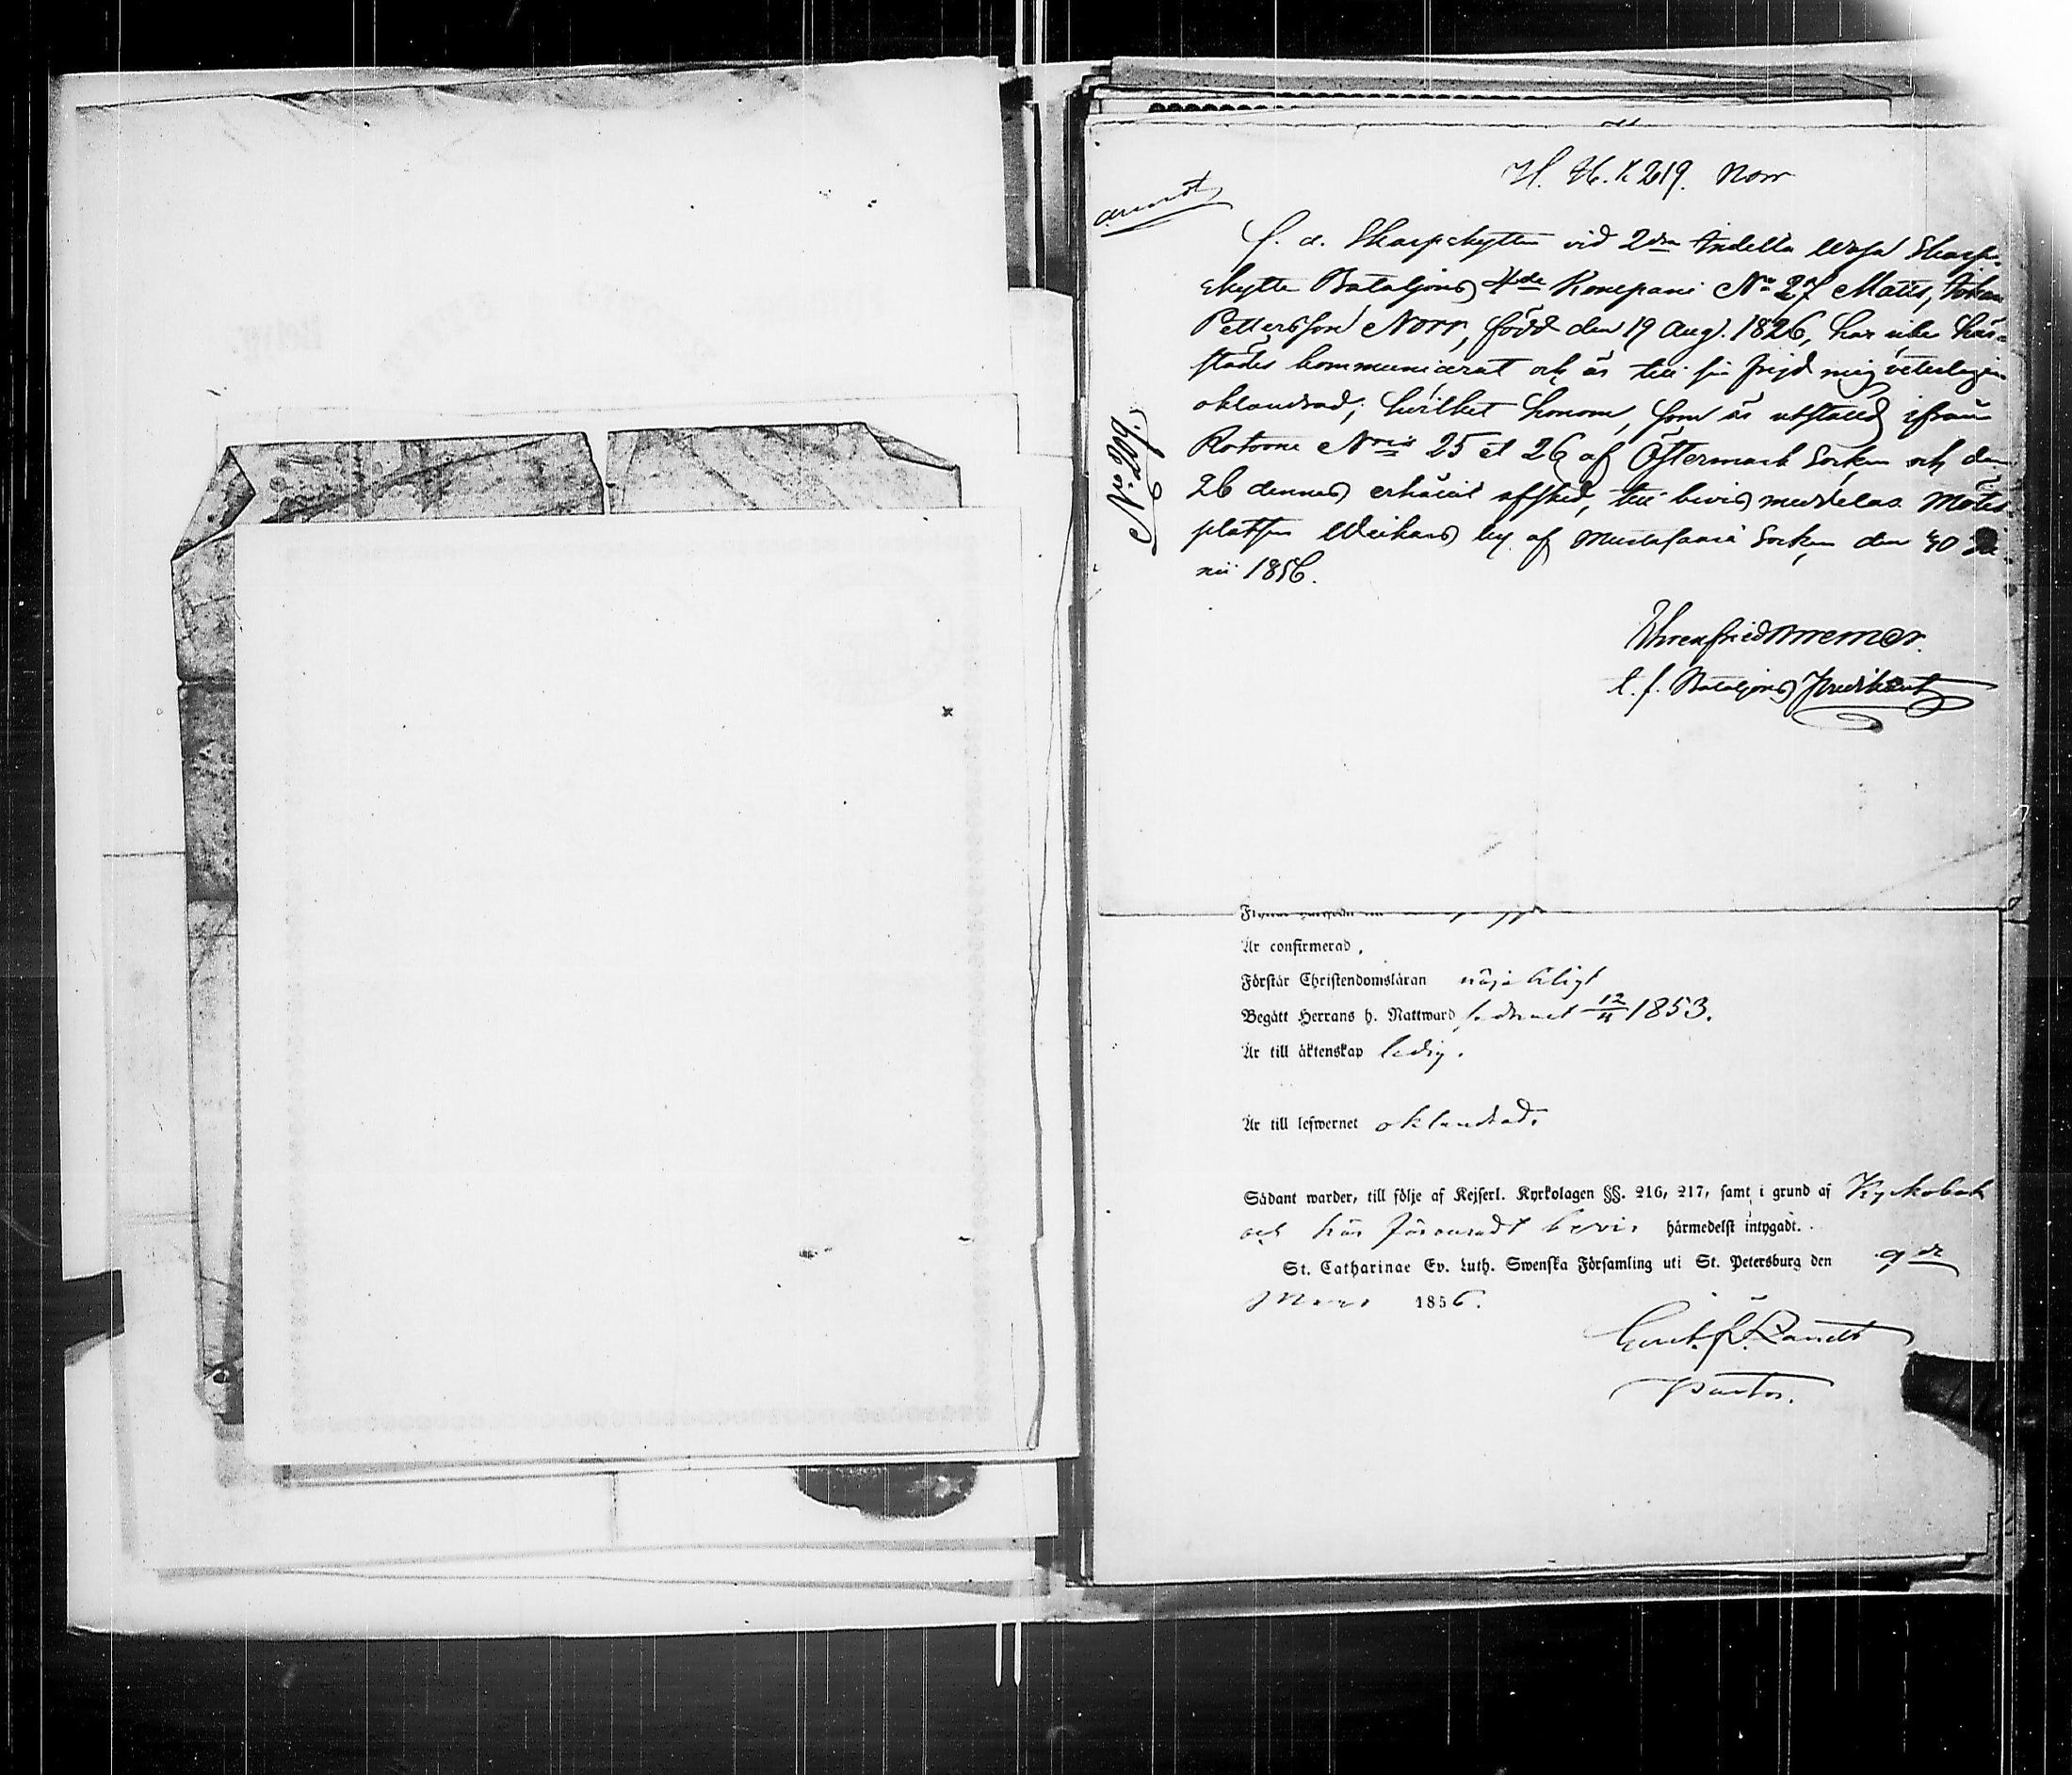 219. Norr
f. d. Skarpskytten vid 2dra Indelta Wasa Skarp-
skytte Bataljons 4de Kompani No 27 Matts, Johan
Pettersson Norr, född den 19 Aug. 1826, har
städes kommunicerat och är till sin frejd mig veterligen
oklandrad; hvilket honom, som är utstånd ifrån
Rotorne Nris 25 et 26 af Östermark Socken och den
26 dennes erhållit afsked, till bevis meddelas. Mötes
platsen by af Socken den 30 Ju-
nii 1856.
Ehrenfried Bremer.
t. f. Bataljons Predikant
No 209.
Är confirmerad,
Förstår Christendomsläran nöjaktigt
Begått Herrans h. Nattward sednast 12/4 1853.
Är till äktenskap ledig.
Är till lefwernet oklandrad.
Sådant warder, till följe af Kejserl. Kyrkolagen §§. 216, 217, samt i grund af Kyrkobok
och här förewisadt bewis härmedelst intygadt.
St. Catharinae Ev. Luth. Swenska Församling uti St. Petersburg den 9de
Mars 1856.
Pastor.